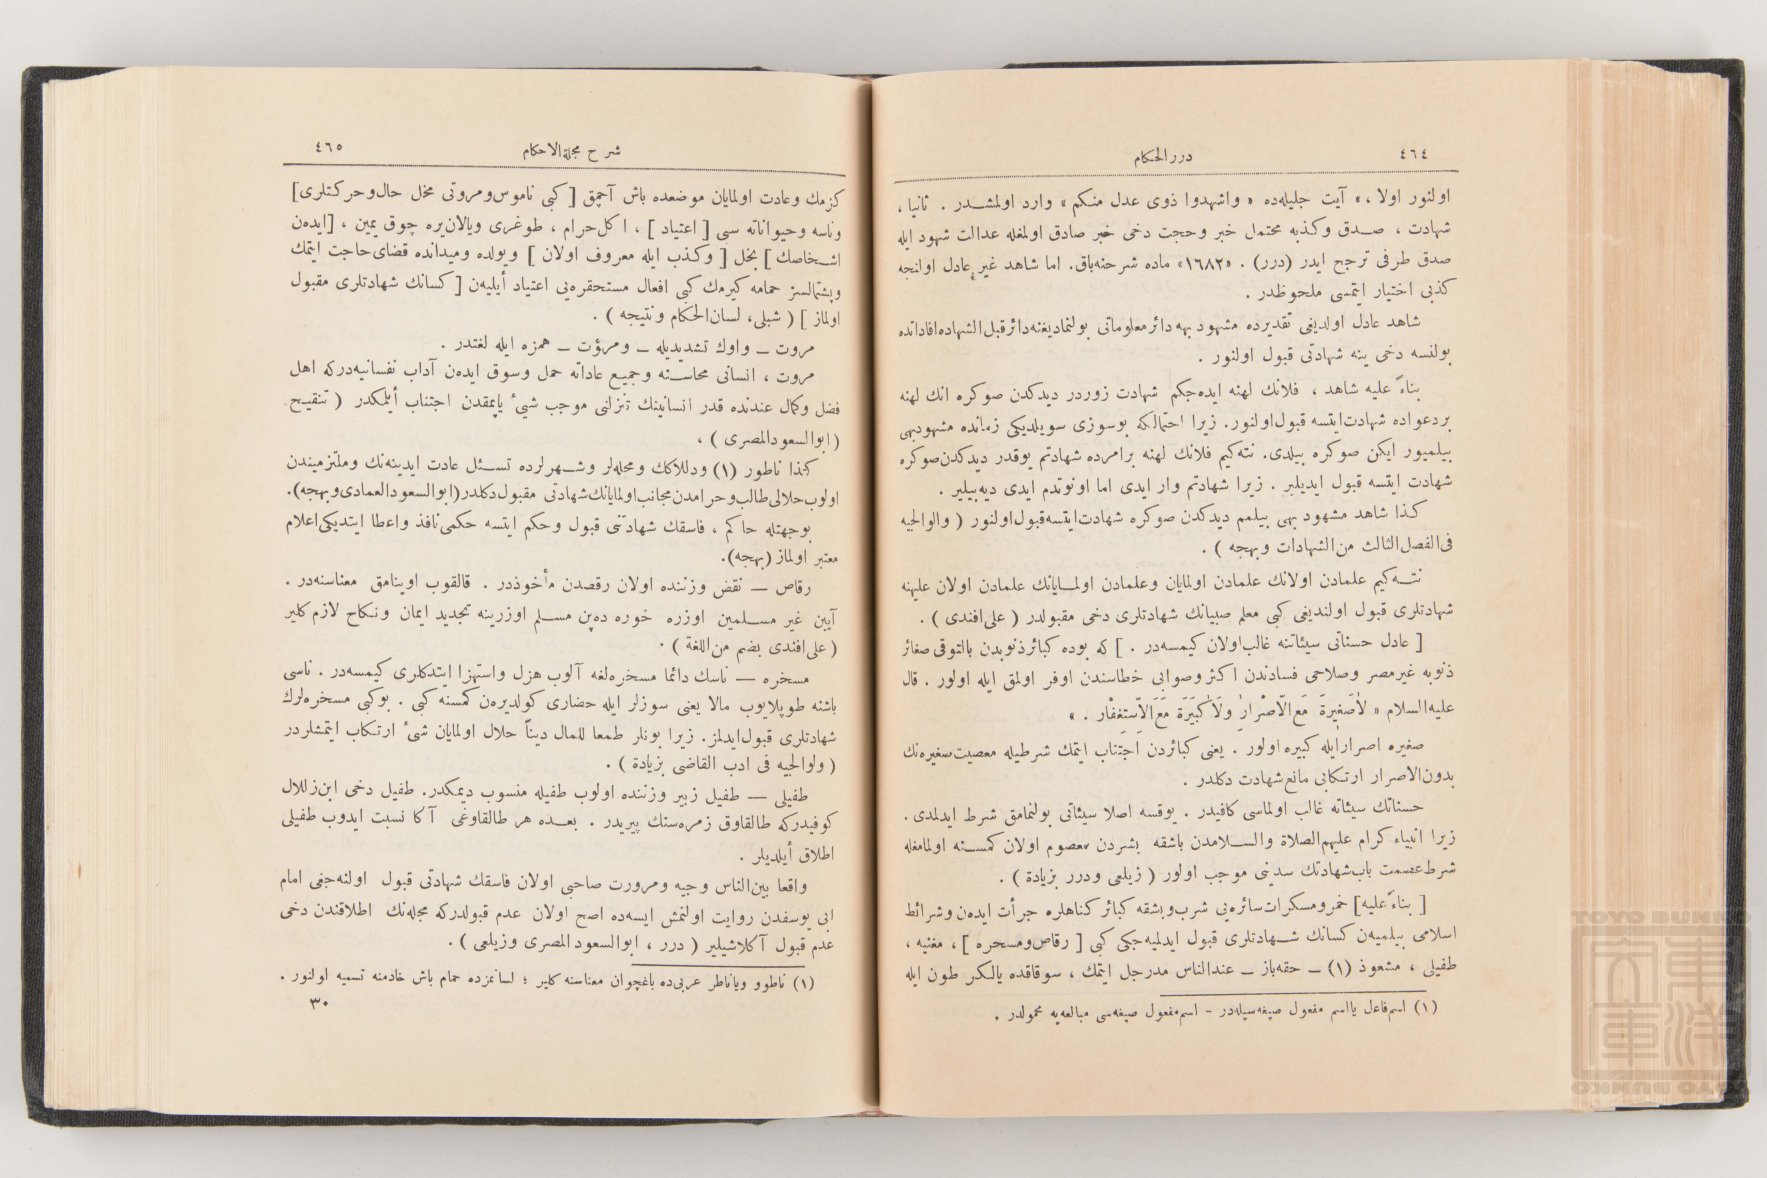 ٤٦٤
درر الحكام
اولنور اولا ،» آیت جلیله‌ده « واشهدوا ذوی عدل منكم » وارد اولمشـدر . ثانیا ،
شهادت ، صـدق وكذبه محتمل خبر وحجت دخی خبر صادق اولمغله عدالت شهود ایله
صدق طرفی ترجح ایدر (درر) . «١٦٨٢» ماده شرحنه‌باق. اما شاهد غیر عادل اولنجه
كذبی اختیار ایتمسی ملحوظدر .
شاهد عادل اولدیغی تقدیرده مشهود بهه دائر معلوماتی بولنمادیغنه‌دائر قبل‌الشهاده‌افاداتده
بولنسه دخی ینه شهادتی قبول اولنور .
بناءً علیه شاهد ، فلانك لهنه ایده‌جكم شهادت زوردر دیدكدن صوكره انك لهنه
بر دعواده شهادت‌ایتسه قبول‌اولنور. زیرا احتمالكه بوسوزی سویلدیكی زمانده مشهودبهی
بیلمیور ایكن صوكره بیلدی. نته‌كیم فلانك لهنه برامرده شهادتم یوقدر دیدكدن‌صوكره
شهادت ایتسه قبول ایدیلیر . زیرا شهادتم وار ایدی اما اونوتدم ایدی دیه‌بیلیر .
كذا شاهد مشهود بهی بیلمم دیدكدن صوكره شهادت‌ایتسه‌قبول‌اولنور ( والوالجیه
فی‌الفصل‌الثالث من‌الشهادات وبهجه ) .
نتـه‌كیم علمادن اولانك علمادن اولمایان وعلمادن اولمـایانك علمادن اولان علیهنه
شهادتلری قبول اولندیغی كبی معلم صبیانك شهادتلری دخی مقبولدر ( علی‌افندی ) .
[ عادل حسناتی سیئاتنه غالب‌اولان كیمسه‌در . ] كه بوده كبائر ذنوبدن بالتوقی صغائر
ذنوبه غیرمصر وصلاحی فسادندن اكثر وصوابی خطاسندن اوفر اولمق ایله اولور . قال
علیه‌السلام « لاصَغیرَةَ مَعَ‌الْاصْرارِ وَلاٰكَبیرَةَ مَعَ‌الْاِسْتِغْفٰار . »
صغیره اصرارایله كبیره اولور . یعنی كبائردن اجتناب ایتمك شرطیله معصیت‌صغیره‌نك
بدون‌الاصرار ارتكابی مانع‌شهادت دكلدر .
حسناتك سیئاته غالب اولماسی كافیدر . یوقسه اصلا سیئاتی بولنمامق شرط ایدلمدی .
زیرا انبیاء كرام علیهم‌الصلاة والسـلامدن باشقه بشردن معصوم اولان كمسـنه اولمامغله
شرط‌عصمت باب‌شهادتك سدینی موجب اولور ( زیلعی ودرر بزیادة ) .
[ بناءً علیه] خمر ومسكرات‌سائره‌یی شرب‌وبشقه كبائر كناهلره جرأت ایده‌ن وشرائط
اسلامی بیلمیه‌ن كسانك شـهادتلری قبول ایدلمیه‌جكی كبی [ رقاص‌ومسخره ] ، مغنیه ،
طفیلی ، مشعوذ (١) ــ حقه‌باز ــ عندالناس مدرجل ایتمك ، سوقاقده یالكز طون ایله
(١) اسم‌فاعل یااسم مفعول صیغه‌سیله‌در - اسم‌مفعول صیغه‌سی مبالغه‌یه محمولدر .
شرح مجلة الاحكام
٤٦٥
كزمك وعادت اولمایان موضعده باش آچمق [ كبی ناموس‌ومروتی مخل حال‌وحركتلری]
وناسه وحیواناته سبی [ اعتیاد ] ، اكل‌حرام ، طوغری ویالان‌یره چوق یمین ، [ایده‌ن
اشـخاصك ] بخل [ وكذب ایله معروف اولان ] ویولده ومیدانده قضای‌حاجت ایتمك
وپشتمالسز حمامه كیرمك كبی افعال مستحقره‌یی اعتیاد أیلیه‌ن [ كسانك شهادتلری مقبول
اولماز ] ( شبلی، لسان‌الحكام ونتیجه ) .
مروت ــ واوك تشدیدیله ــ ومرؤت ــ همزه ایله لغتدر .
مروت ، انسانی محاسـنه وجمیع عاداته حمل وسوق ایده‌ن آداب نفسانیه‌دركه اهل
فضل وكمال عندنده قدر انسانینك تنزلنی موجب شیءٔ یاپمقدن اجتناب أیلمكدر ( تنقیح
(ابوالسعودالمصری ) ،
كذا ناطور (١) ودللاكك ومحله‌لر وشـهرلرده تسـئل عادت ایدینه‌نك وملتزمیندن
اولوب‌حلالی‌طالب‌وحرامدن‌مجانب‌اولمایانك‌شهادتی مقبول‌دكلدر(ابوالسعودالعمادی‌وبهجه).
بوجهتله حاكم ، فاسقك شهادتنی قبول وحكم ایتسه حكمی‌نافذ واعطا ایتدیكی‌اعلام
معتبر اولماز (بهجه).
رقاص ــ نقض وزننده اولان رقصدن مأخوذدر . قالقوب اوینامق معناسنه‌در .
آیین غیر مسـلمین اوزره خوره ده‌پن مسـلم اوزرینه تجدید ایمان ونكاح لازم كلیر
( علی‌افندی بضم من‌اللغة ) .
مسخره ــ ناسك دائما مسخره‌لغه آلوب هزل واستهزا ایتدكلری كیمسه‌در . ناسی
باشنه طوپلایوب مالا یعنی سوزلر ایله حضاری كولدیره‌ن كمسنه كبی . بوكبی مسخره‌لرك
شهادتلری قبول‌ایدلمز. زیرا بونلر طمعا للمال دیناً حلال اولمایان شیءٔ ارتكاب ایتمشلردر
( ولوالجیه فی ادب القاضی بزیادة ) .
طفیلی ــ طفیل زبیر وزننده اولوب طفیله منسوب دیمكدر. طفیل دخی ابن‌زلال
كوفیدركه طالقاوق زمره‌سنك پیریدر . بعـده هر طالقاوغی آكا نسبت ایدوب طفیلی
اطلاق أیلدیلر .
واقعا بین‌الناس وجیه ومرورت صاحبی اولان فاسقك شهادتی قبول اولنه‌جغی امام
ابی یوسفدن روایت اولنمش ایسه‌ده اصح اولان عدم قبولدركه مجله‌نك اطلاقندن دخی
عدم قبول آكلاشیلیر ( درر ، ابوالسعود المصری وزیلعی ) .
(١) ناطوو ویاناطر عربی‌ده باغچوان معناسنه كلیر ؛ لسانمزده حمام باش خادمنه تسمیه اولنور .
٣٠
TOYO BUNKO
東洋文庫
TOYO BUNKO